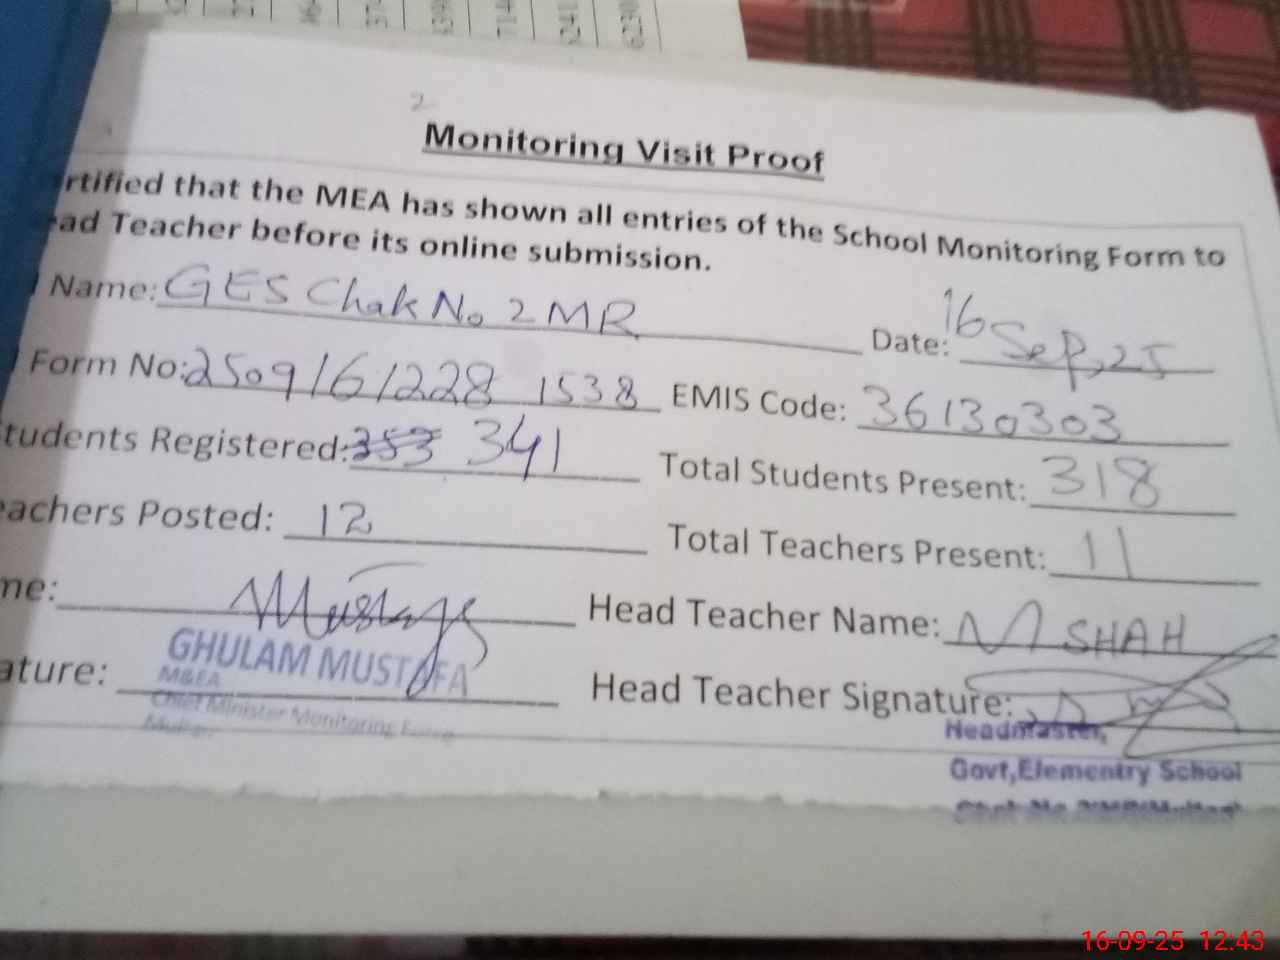 2
Monitoring Visit Proof
rtified that the MEA has shown all entries of the School Monitoring Form to
ead Teacher before its online submission.
Name: GES Chak No 2 MR Date: 16 Sep, 25
Form No: 2509161228 1538 EMIS Code: 36130303
tudents Registered: 353 341 Total Students Present: 318
eachers Posted: 12 Total Teachers Present: 11
me: Head Teacher Name: M SHAH
ature: Head Teacher Signature:
GHULAM MUSTAFA
M&EA
Chief Minister Monitoring Force
Multan
Headmaster,
Govt,Elementry School
16-09-25 12:43